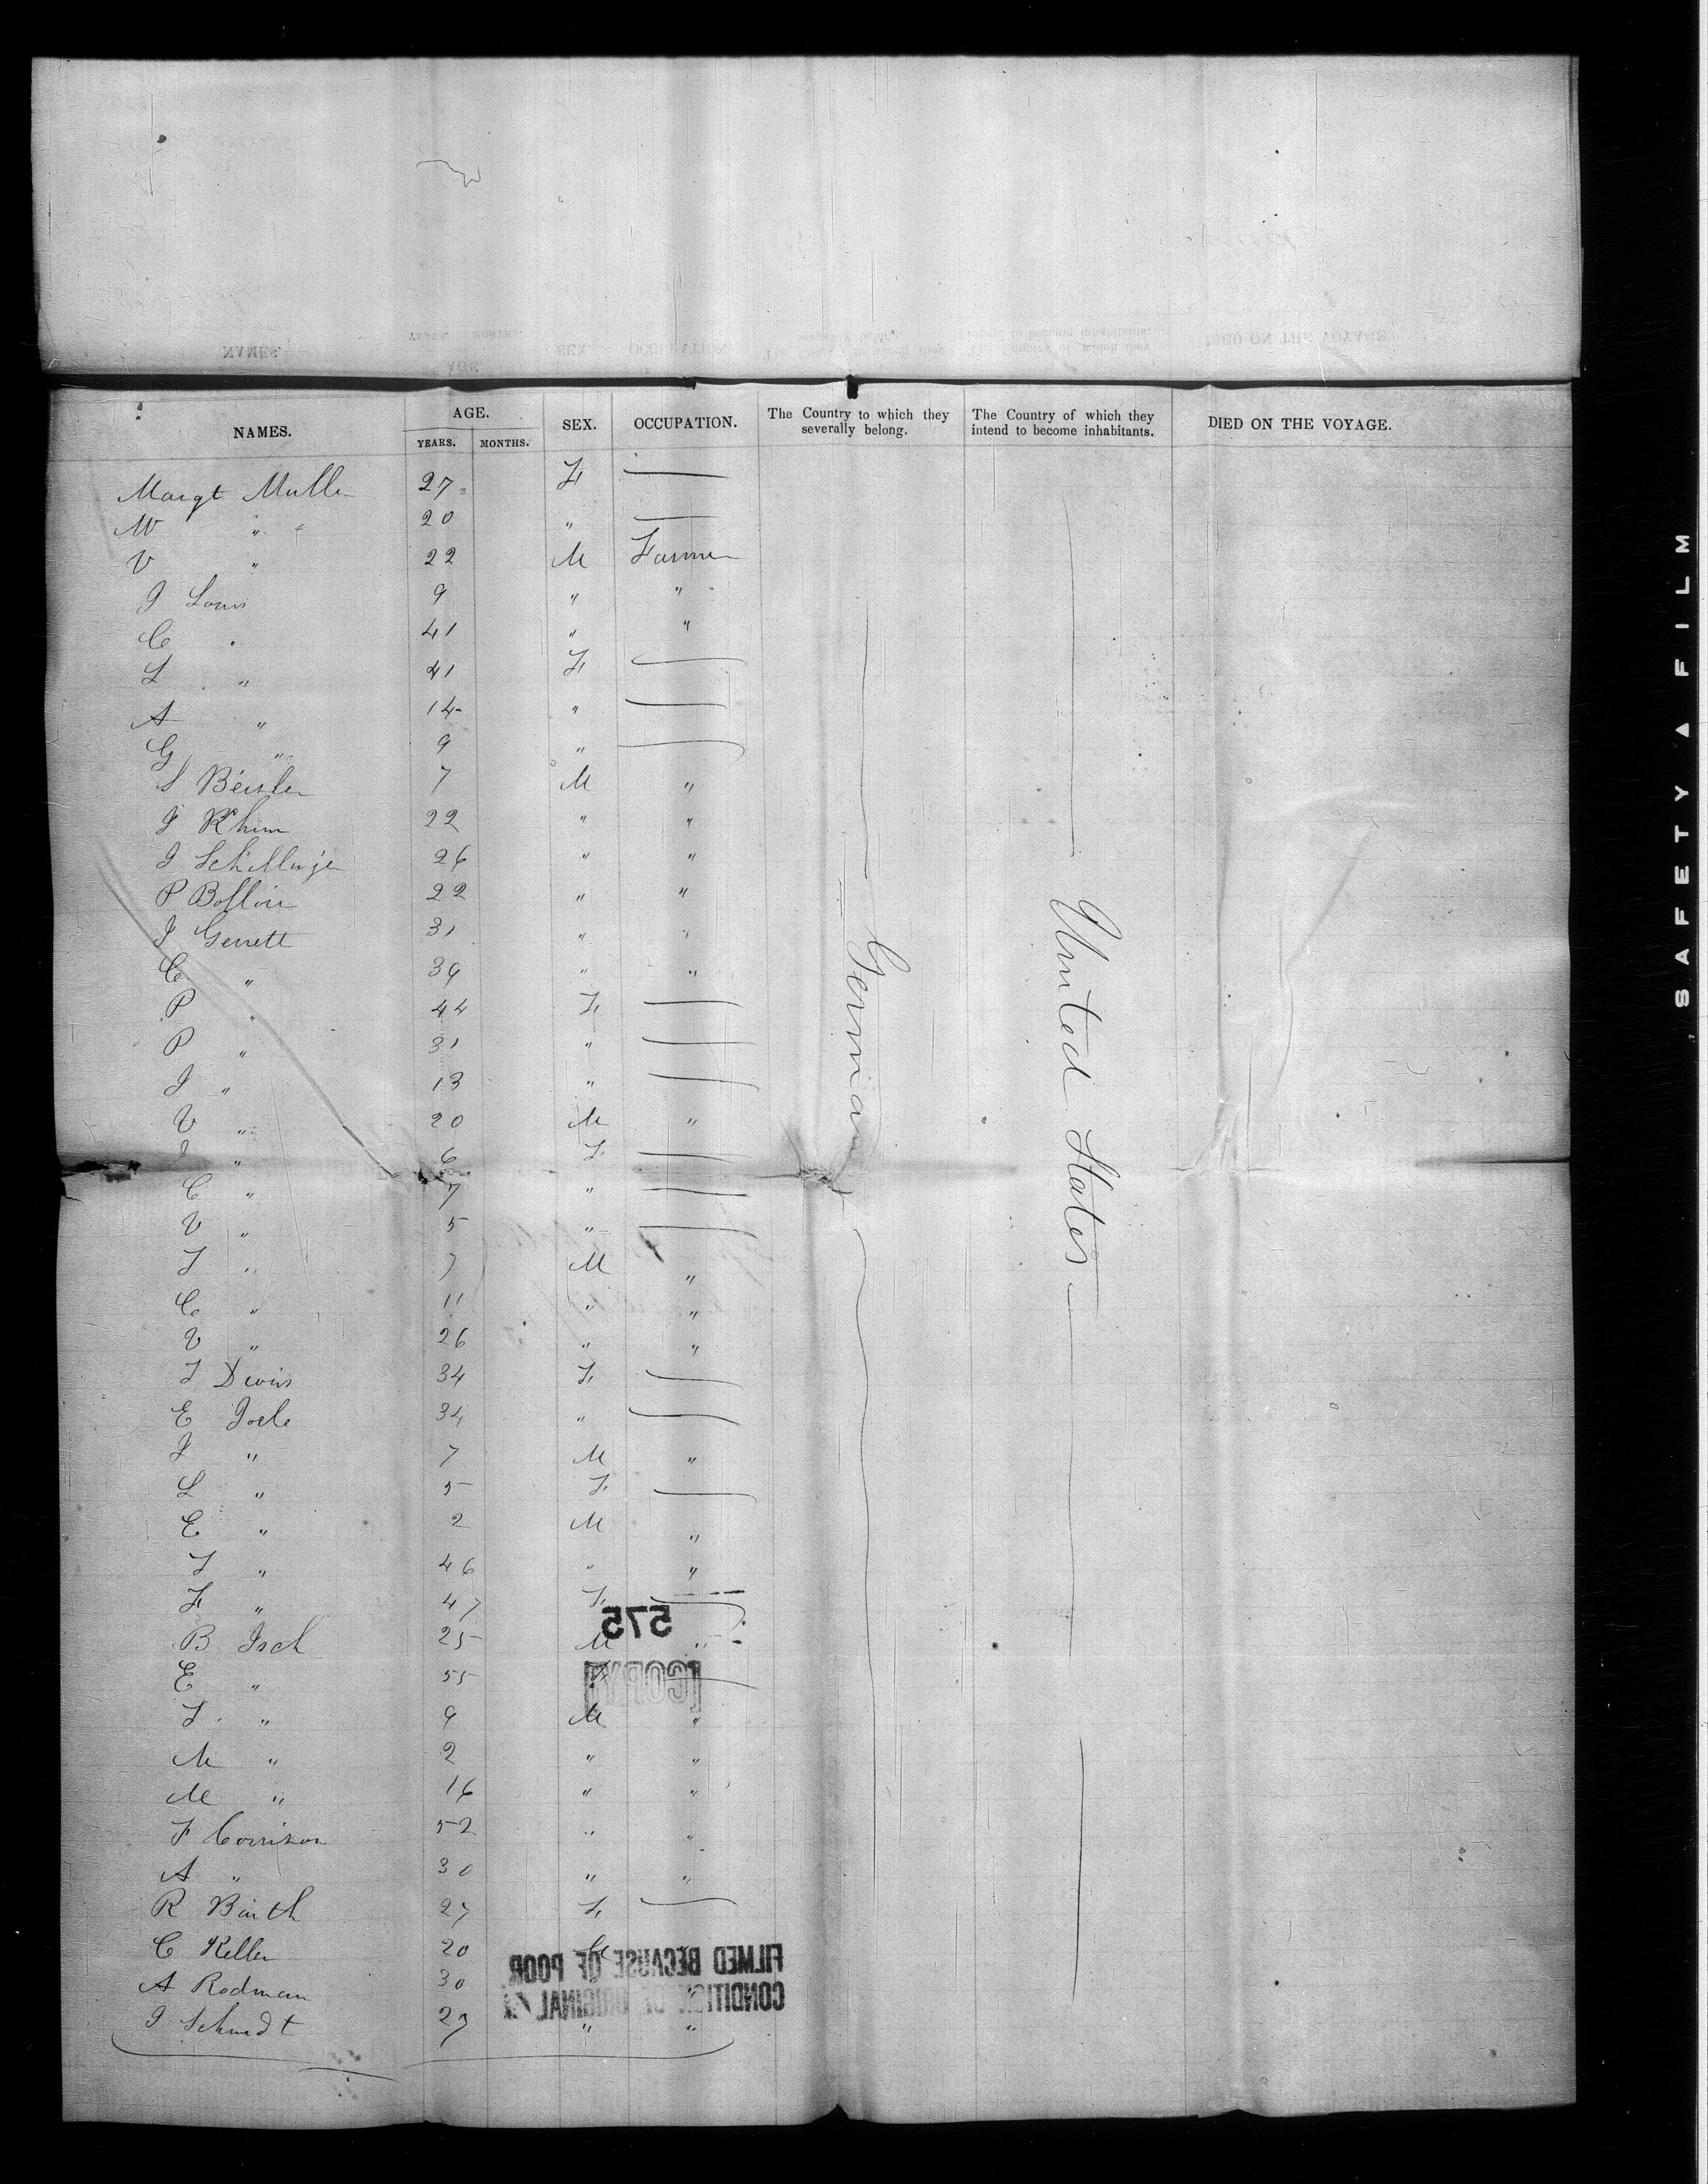 NAMES. AGE. YEARS. MONTHS. SEX. OCCUPATION. The Country to which they severally belong. The Country of which they intend to become inhabitants. DIED ON THE VOYAGE.
Margt Muller 27 F —
M " 20 " —
V " 22 M Farmer
J Louis 9 " "
C " 41 " "
L " 41 F —
A " 14 " —
G " 9 " —
S Beisler 7 M "
J Rhim 22 " "
J Schillinger 26 " "
P 22 " "
J Gerrett 31 " "
C " 39 " "
P " 44 F —
P " 31 " —
J " 13 " —
V " 20 M "
J " 6 F —
C " 7 " —
V " 5 " —
T " 7 M "
C " 11 " "
V " 26 " "
T 34 F —
E 34 " —
J " 7 M "
L " 5 F —
E " 2 M "
T " 46 " "
F " 47 F —
B Isch 25 M "
E " 55 —
T " 9 M "
M " 2 " "
M " 16 " "
F Corrison 52 " "
A " 30 " "
R Barth 27 F —
C Keller 20
A Rodman 30
J Schmidt 27 " "
German
United States
575
COPY
FILMED BECAUSE OF POOR
CONDITION OF ORIGINAL
SAFETY FILM